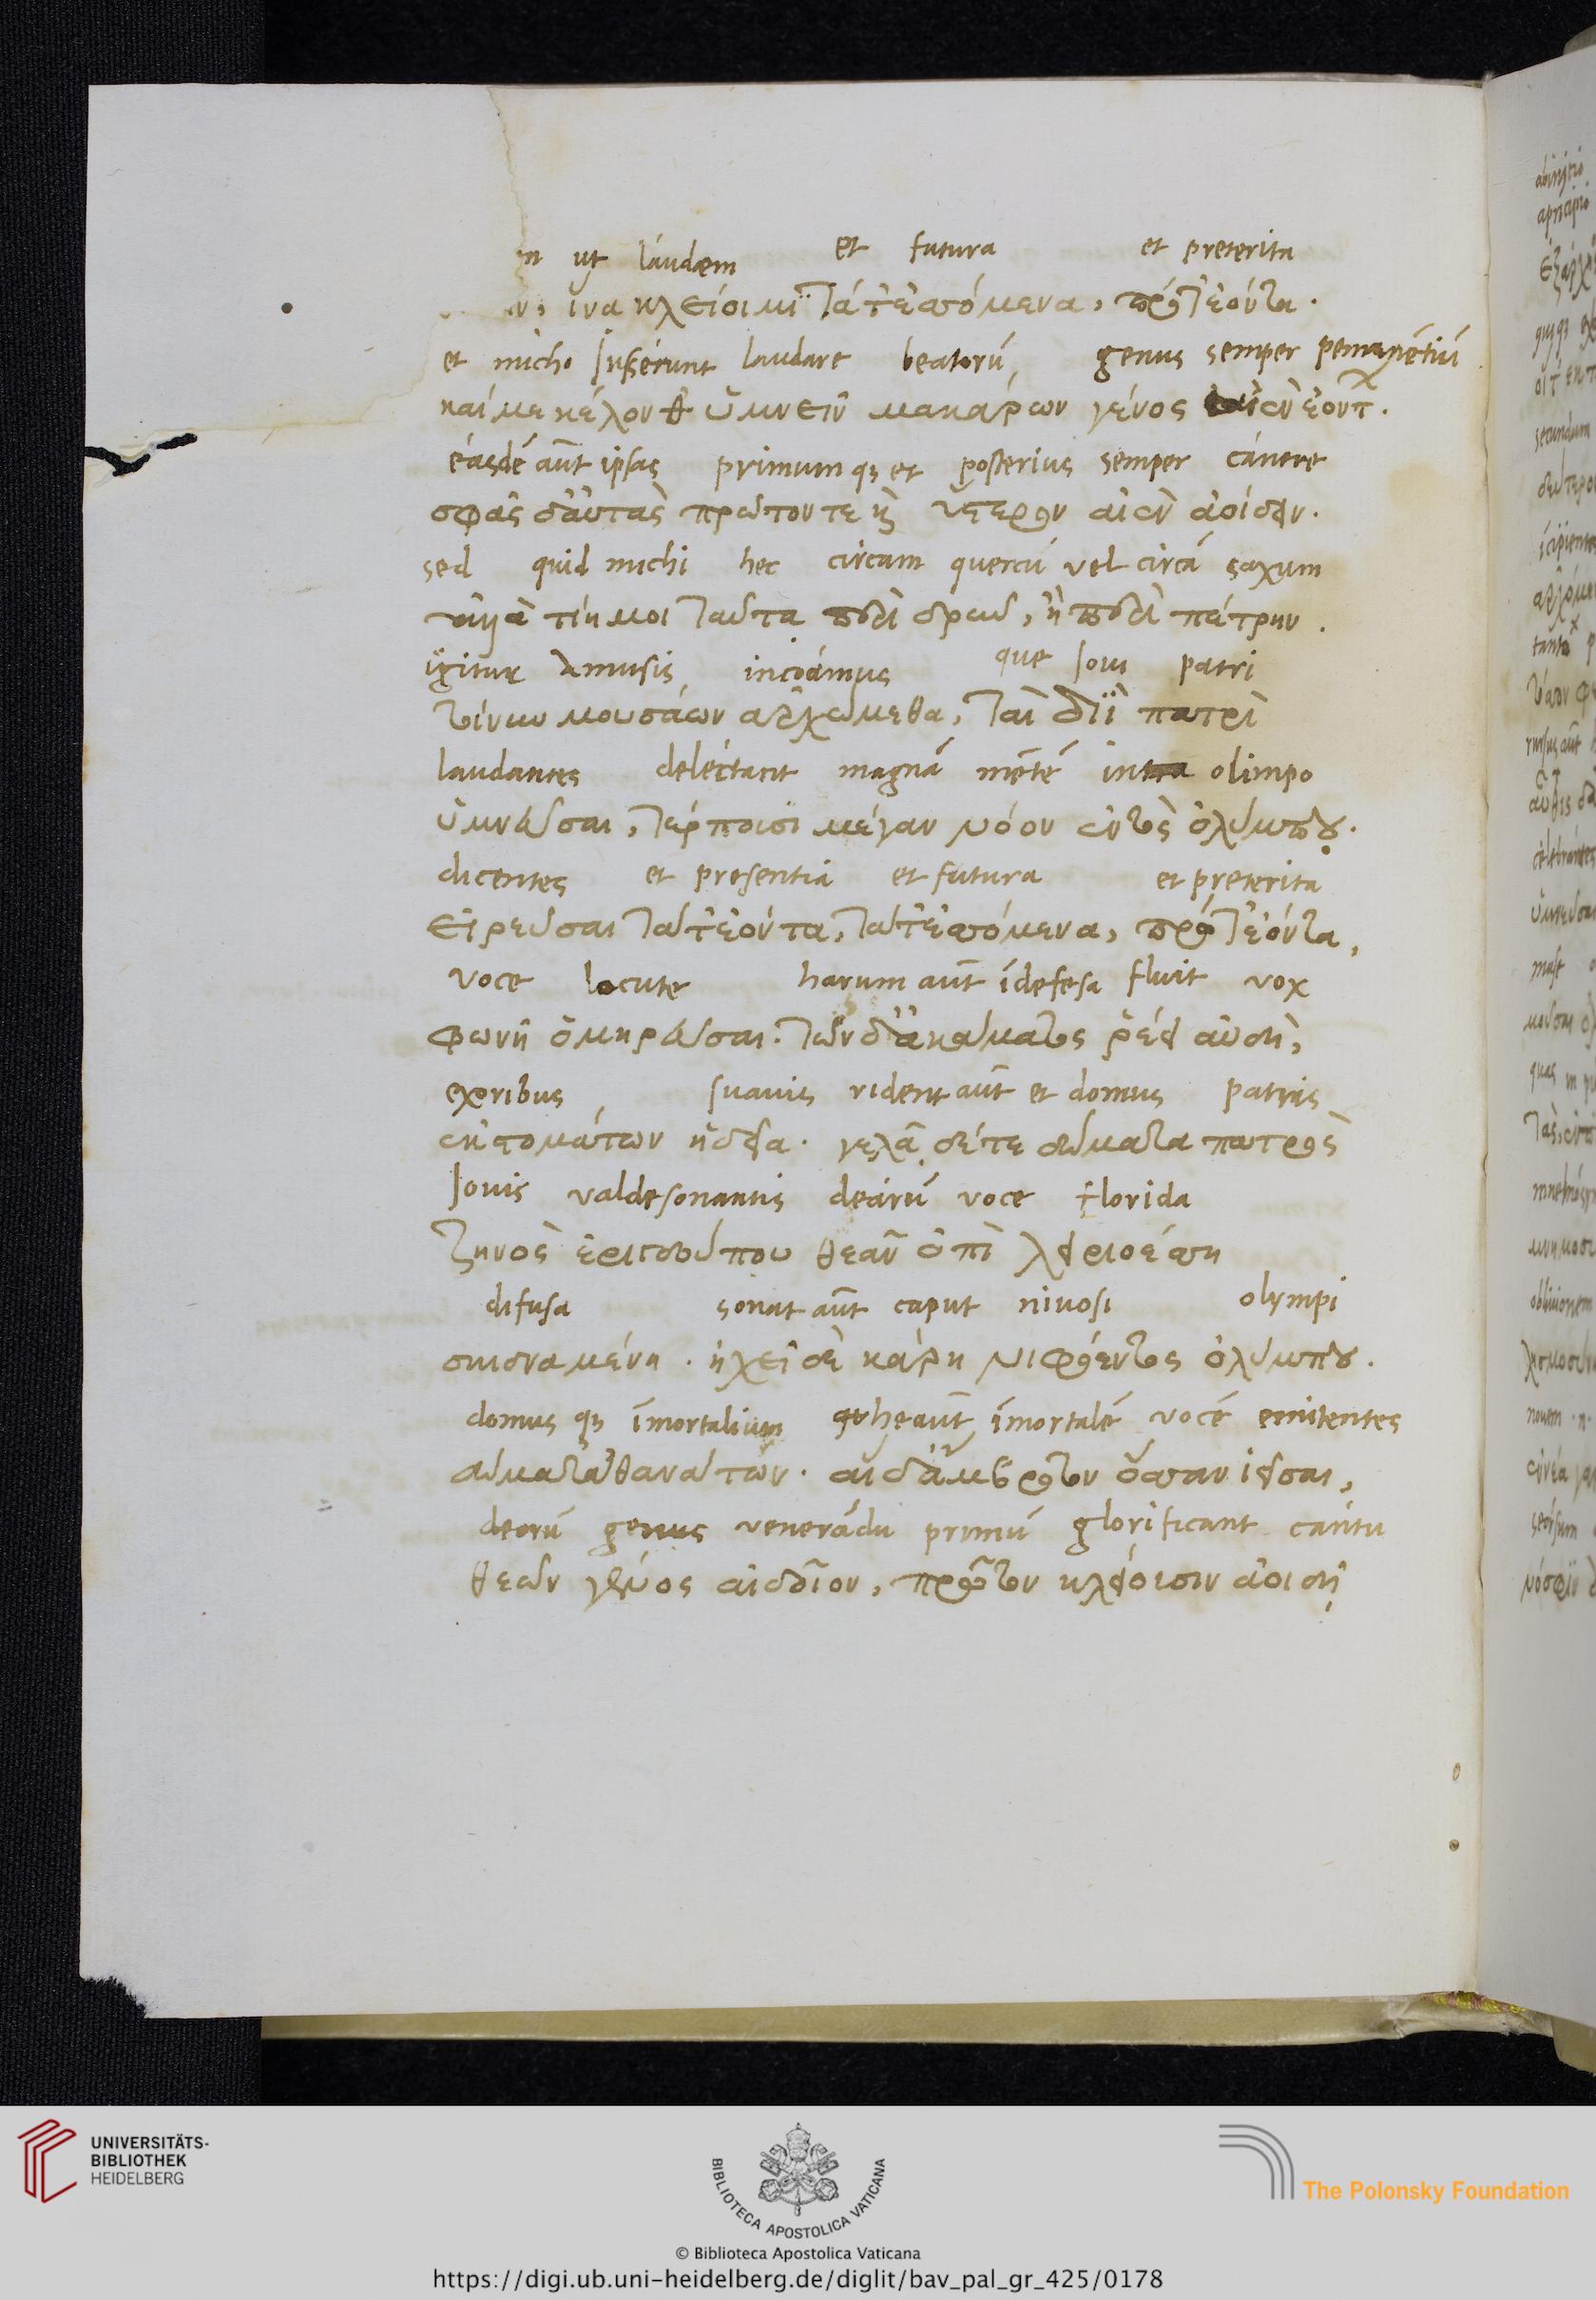 ut láudem et futura et preterita
ἵνα κλείοιμι τά τ' ἐσσόμενα, πρό τ' ἐόντα.
et micho Iusserunt laudare beatorū genus semper permanētiū
καί με κέλονθ' ὑμνεῖν μακάρων γένος αἰὲν ἐόντ.
éasdē aūt ipsas primum qꝫ et posterius semper cánere
σφᾶς δ' αὐτὰς πρῶτον τε κ̀ ὕστερον αἰὲν ἀείδειν.
sed quid michi hec circum quercū vel circā saxum
τίη μοι ταῦτα περὶ δρῦν, ἢ περὶ πέτρην.
igitur Amusis incoámus que Ioui patri
τύνη μουσάων ἀρχώμεθα, ταὶ διῒ πατρὶ
laudantes deléctant magnā mētē intra olimpo
ὑμνεῦσαι, τέρπουσι μέγαν νόον ἐντὸς ὀλύμπου.
dicentes et presentia et futura et preterita
εἰρεῦσαι τά τ' ἐόντα, τά τ' ἐσσόμενα, πρό τ' ἐόντα,
voce locute harum aūt īdefesa fluit vox
φωνῇ ὁμηρεῦσαι. τῶν δ' ἀκάματος ῥέει αὐδὴ,
exoribus suauis rident aūt et domus patris
ἐκ στομάτων ἡδεῖα. γελᾷ δέ τε δώματα πατρὸς
Iouis valdesonantis deárū voce florida
ζηνὸς ἐριγδούπου θεᾶν ὀπὶ λειριοέσση
difusa sonat aūt caput niuosi olympi
σκιδναμένη. ἠχεῖ δὲ κάρη νιφόεντος ὀλύμπου.
domus qꝫ īmortalium heaūt īmortalē vocē emitentes
δώματα θανάτων. αἱ δ' ἄμβροτον ὄσσαν ἱεῖσαι,
deorū genus venerádū primū glorificant cantu
θεῶν γένος αἰδοῖον, πρῶτον κλείουσιν ἀοιδῇ
UNIVERSITÄTS-
BIBLIOTHEK
HEIDELBERG
BIBLIOTECA APOSTOLICA VATICANA
The Polonsky Foundation
© Biblioteca Apostolica Vaticana
https://digi.ub.uni-heidelberg.de/diglit/bav_pal_gr_425/0178